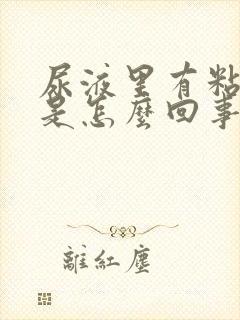 尿液里有粘
是怎麽回事
離紅塵